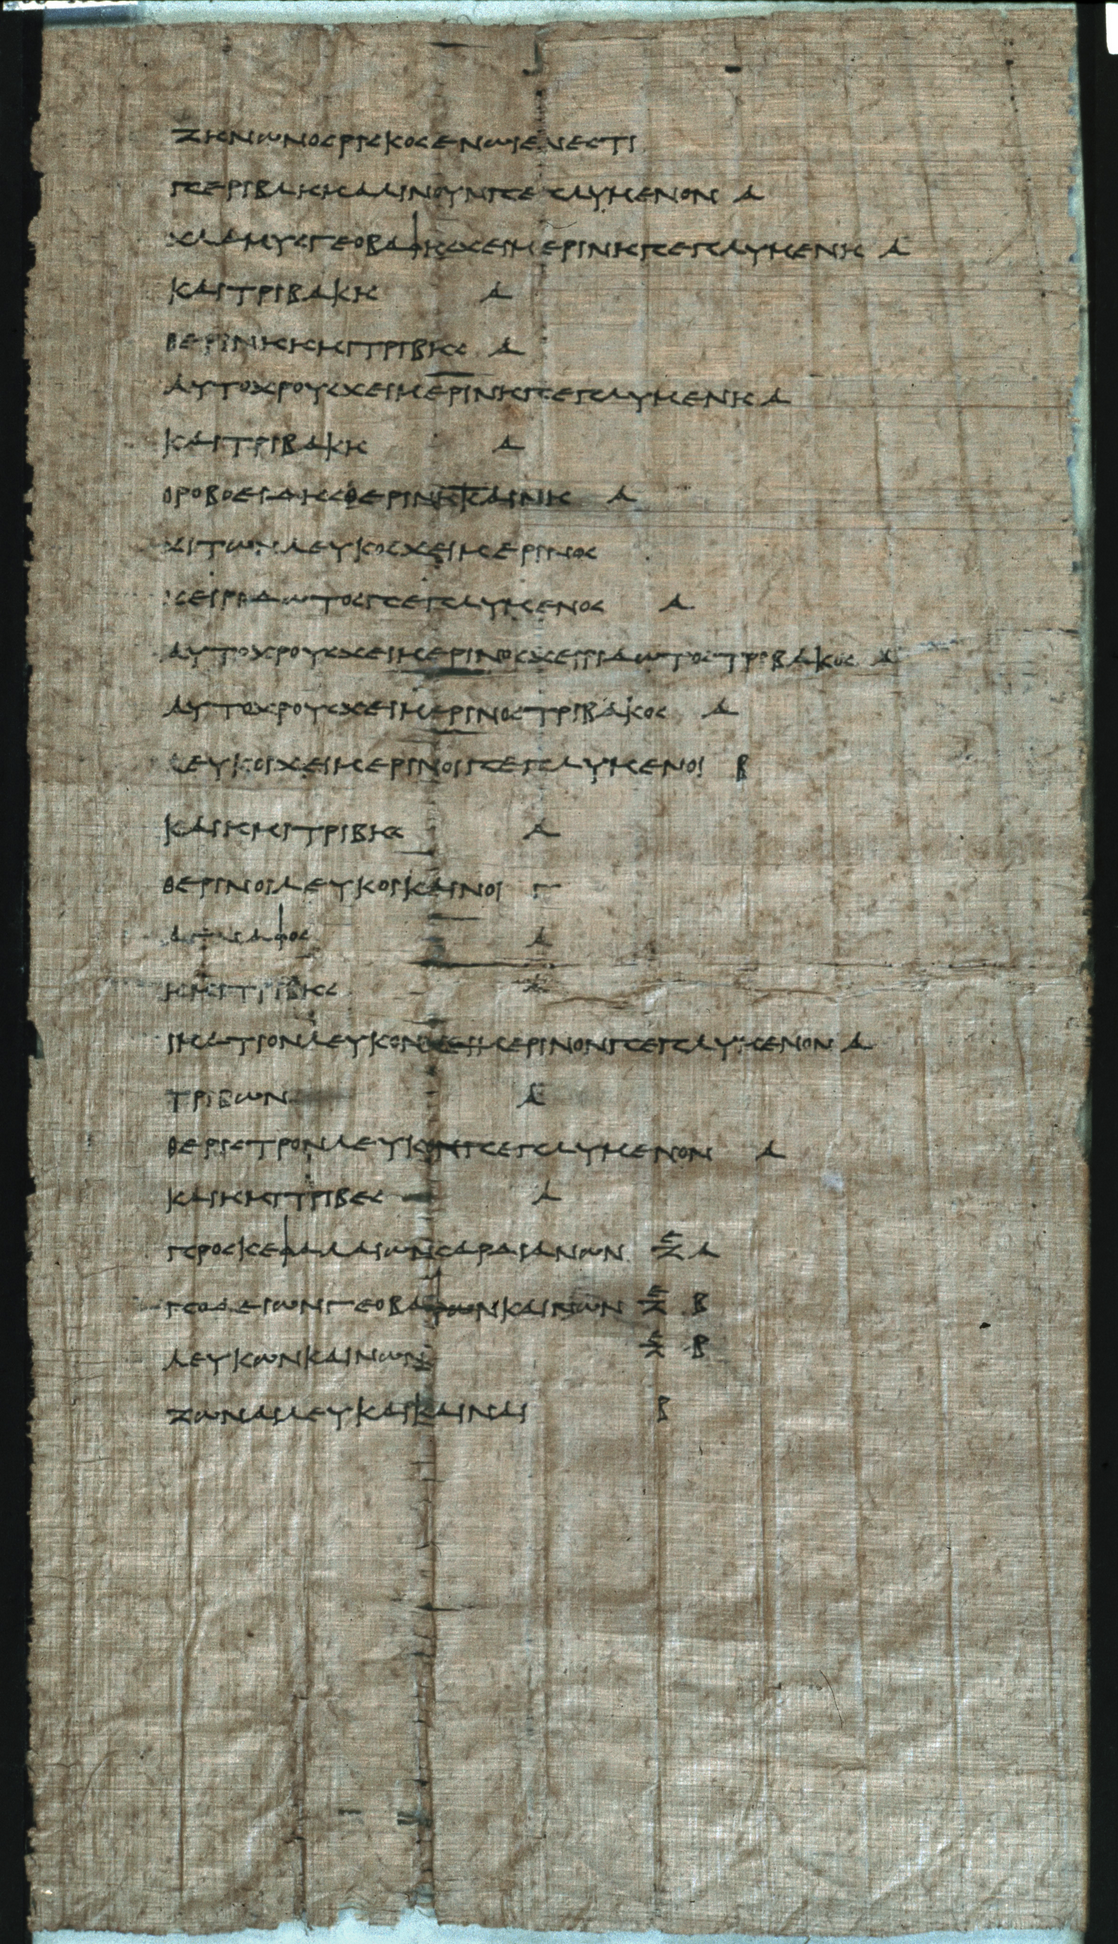 ΖΗΝΩΝΟΣΡΙΣΚΟΣΕΝΩΙΕΝΕΣΤΙ
ΠΕΡΙΒΛΗΜΑΛΙΝΟΥΝΠΕΠΛΥΜΕΝΟΝ Α
ΧΛΑΜΥΣΓΕΟΒΑΦΗΣΧΕΙΜΕΡΙΝΗΠΕΠΛΥΜΕΝΗ Α
ΚΑΙΤΡΙΒΑΚΗ Α
ΘΕΡΙΝΗΗΜΙΤΡΙΒΗΣ Α
ΑΥΤΟΧΡΟΥΣΧΕΙΜΕΡΙΝΗΠΕΠΛΥΜΕΝΗ Α
ΚΑΙΤΡΙΒΑΚΗ Α
ΟΡΟΒΟΕΙΔΗΣΘΕΡΙΝΗΚΑΙΝΗ Α
ΧΙΤΩΝΛΕΥΚΟΣΧΕΙΜΕΡΙΝΟΣ
ΧΕΙΡΙΔΩΤΟΣΠΕΠΛΥΜΕΝΟΣ Α
ΑΥΤΟΧΡΟΥΣΧΕΙΜΕΡΙΝΟΣΧΕΙΡΙΔΩΤΟΣΤΡΙΒΑΚΟΣ Α
ΑΥΤΟΧΡΟΥΣΧΕΙΜΕΡΙΝΟΣΤΡΙΒΑΚΟΣ Α
ΛΕΥΚΟΙΧΕΙΜΕΡΙΝΟΙΠΕΠΛΥΜΕΝΟΙ Β
ΚΑΙΗΜΙΤΡΙΒΗΣ Α
ΘΕΡΙΝΟΙΛΕΥΚΟΙΚΑΙΝΟΙ Γ
ΑΓΝΑΦΟΣ Α
ΗΜΙΤΡΙΒΗΣ Α
ΙΜΑΤΙΟΝΛΕΥΚΟΝΧΕΙΜΕΡΙΝΟΝΠΕΠΛΥΜΕΝΟΝ Α
ΤΡΙΒΩΝ Α
ΘΕΡΙΣΤΡΟΝΛΕΥΚΟΝΠΕΠΛΥΜΕΝΟΝ Α
ΚΑΙΗΜΙΤΡΙΒΕΣ Α
ΠΡΟΣΚΕΦΑΛΑΙΩΝΣΑΡΔΙΑΝΩΝ ΖΕ Α
ΠΟΔΕΙΩΝΓΕΟΒΑΦΩΝΚΑΙΝΩΝ ΖΕ Β
ΛΕΥΚΩΝΚΑΙΝΩΝ ΖΕ Β
ΖΩΝΑΙΛΕΥΚΑΙΚΑΙΝΑΙ Β